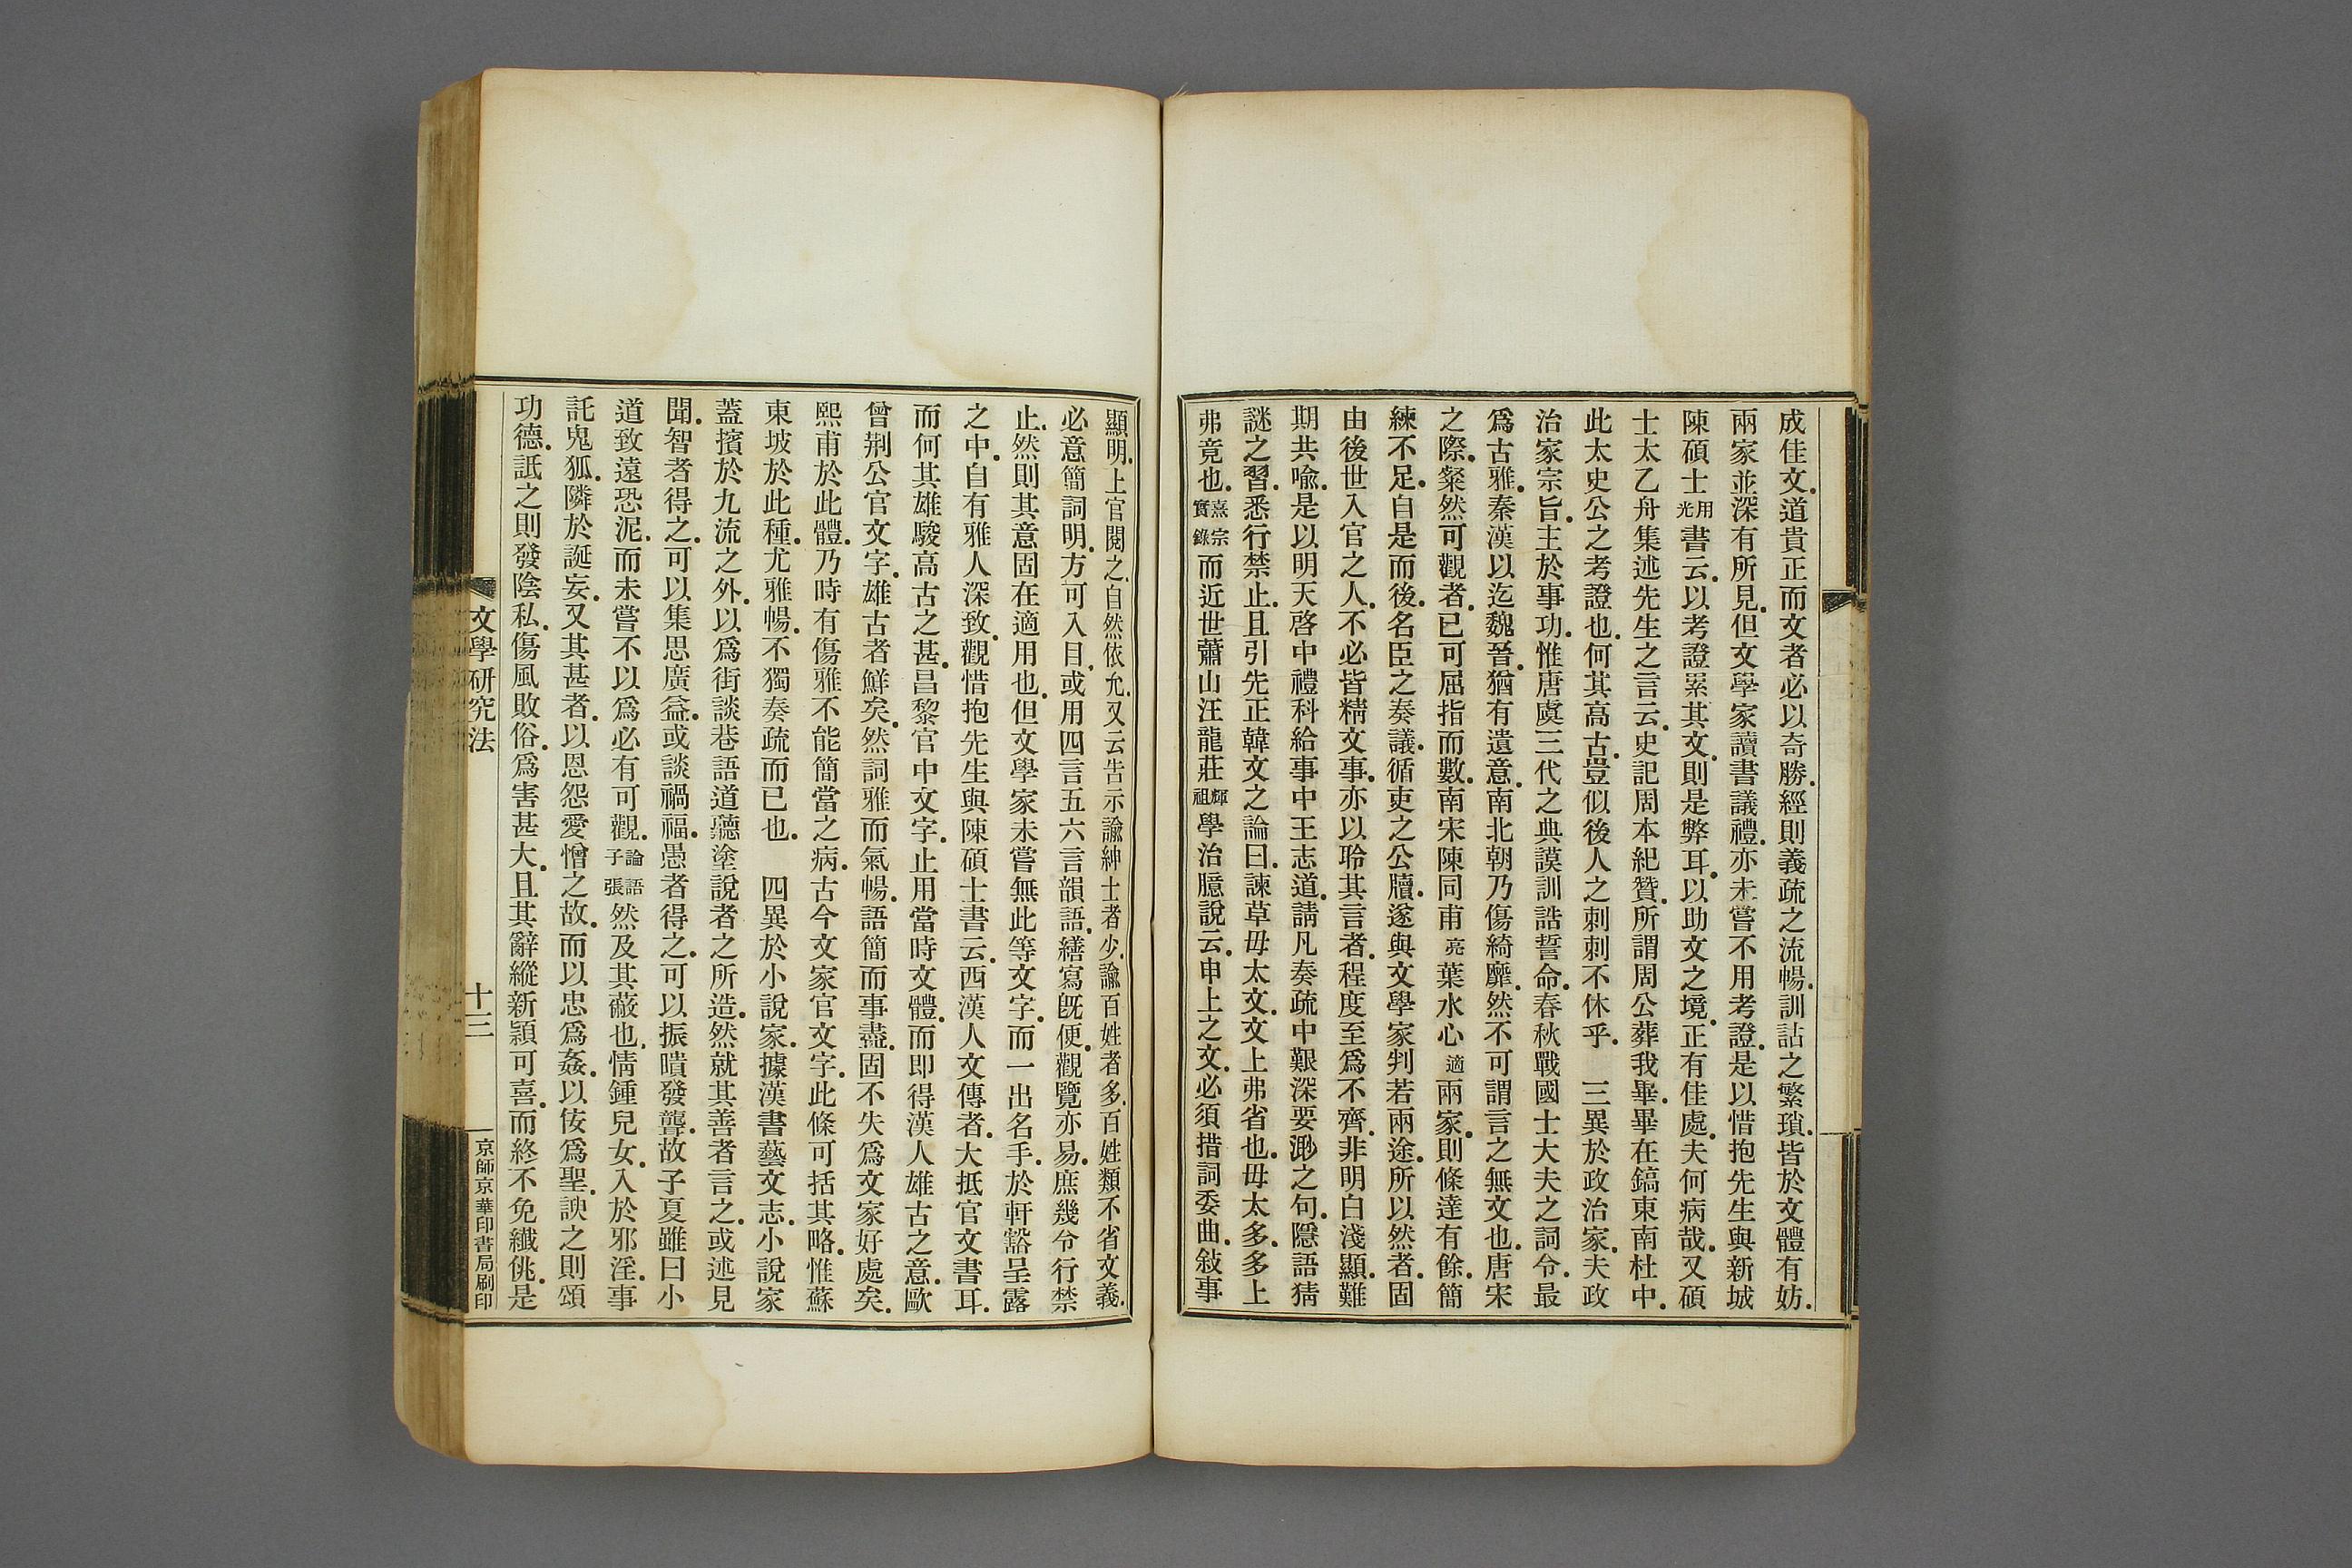 成佳文.道貴正而文者必以奇勝.經則義疏之流暢.訓詁之繁瑣.皆於文體有妨.
兩家並深有所見.但文學家讀書議禮.亦未嘗不用考證.是以惜抱先生與新城
陳碩士用光書云.以考證累其文.則是弊耳.以助文之境.正有佳處.夫何病哉.又碩
士太乙舟集述先生之言云.史記周本紀贊.所謂周公葬我畢.畢在鎬東南杜中.
此太史公之考證也.何其高古.豈似後人之刺刺不休乎. 三異於政治家.夫政
治家宗旨.主於事功.惟唐虞三代之典謨訓誥誓命.春秋戰國士大夫之詞令.最
爲古雅.秦漢以迄魏晉.猶有遺意.南北朝乃傷綺靡.然不可謂言之無文也.唐宋
之際.粲然可觀者.已可屈指而數.南宋陳同甫亮葉水心適兩家.則條達有餘.簡
練不足.自是而後.名臣之奏議.循吏之公牘.遂與文學家判若兩途.所以然者.固
由後世入官之人.不必皆精文事.亦以聆其言者.程度至爲不齊.非明白淺顯.難
期共喻.是以明天啓中禮科給事中王志道.請凡奏疏中艱深要渺之句.隱語猜
謎之習.悉行禁止.且引先正韓文之論曰.諫草毋太文.文上弗省也.毋太多.多上
弗竟也.熹宗實錄而近世蕭山汪龍莊輝祖學治臆說云.申上之文.必須措詞委曲.敍事
顯明.上官閱之.自然依允.又云告示諭紳士者少.諭百姓者多.百姓類不省文義.
必意簡詞明.方可入目.或用四言五六言韻語.繕寫旣便.觀覽亦易.庶幾令行禁
止.然則其意固在適用也.但文學家未嘗無此等文字.而一出名手.於軒豁呈露
之中.自有雅人深致.觀惜抱先生與陳碩士書云.西漢人文傳者.大抵官文書耳.
而何其雄駿高古之甚.昌黎官中文字.止用當時文體.而即得漢人雄古之意.歐
曾荆公官文字.雄古者鮮矣.然詞雅而氣暢.語簡而事盡.固不失爲文家好處矣.
熙甫於此體.乃時有傷雅不能簡當之病.古今文家官文字.此條可括其略.惟蘇
東坡於此種.尤雅暢.不獨奏疏而已也. 四異於小說家.據漢書藝文志.小說家
蓋擯於九流之外.以爲街談巷語道聽塗說者之所造.然就其善者言之.或述見
聞.智者得之.可以集思廣益.或談禍福.愚者得之.可以振聵發聾.故子夏雖曰小
道致遠恐泥.而未嘗不以爲必有可觀.論語子張然及其蔽也.情鍾兒女.入於邪淫.事
託鬼狐.隣於誕妄.又其甚者.以恩怨愛憎之故.而以忠爲姦.以佞爲聖.諛之則頌
功德.詆之則發陰私.傷風敗俗.爲害甚大.且其辭縱新穎可喜.而終不免纖佻.是
文學研究法
十三
京師京華印書局刷印